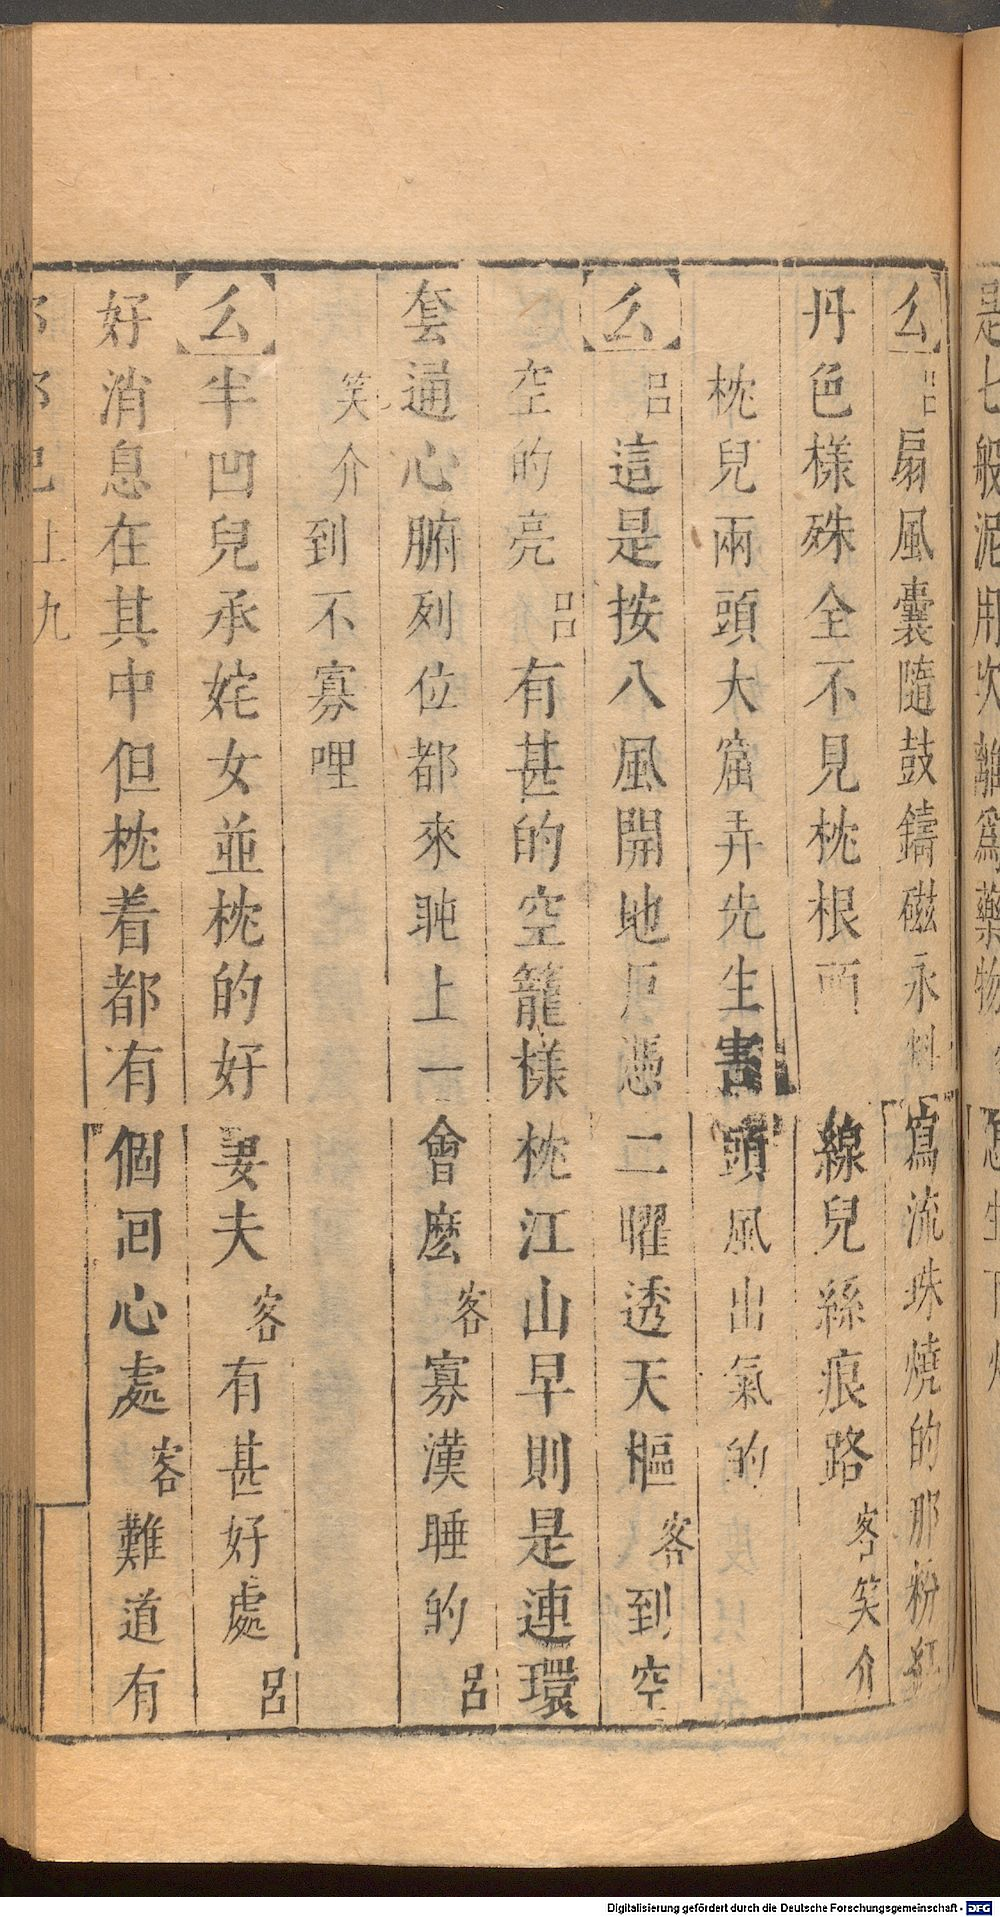 是七般泥用火離爲藥物
么 呂 扇風囊隨鼓鑄磁永料寫流珠燒的那粉紅
丹色樣殊全不見枕根頭線兒絲痕路 客笑介
枕兒兩頭大窟弄先生害頭風出氣的
么 呂 這是按八風開地厄憑二曜透天樞 客 到空
空的亮 呂 有甚的空籠樣枕江山早則是連環
套通心腑列位都來盹上一會麽 客 寡漢睡的 呂
笑介 到不寡哩
么 半凹兒承姹女並枕的好妻夫 客 有甚好處 呂
好消息在其中但枕着都有個回心處 客 難道有
上 九
Digitalisierung gefördert durch die Deutsche Forschungsgemeinschaft - DFG